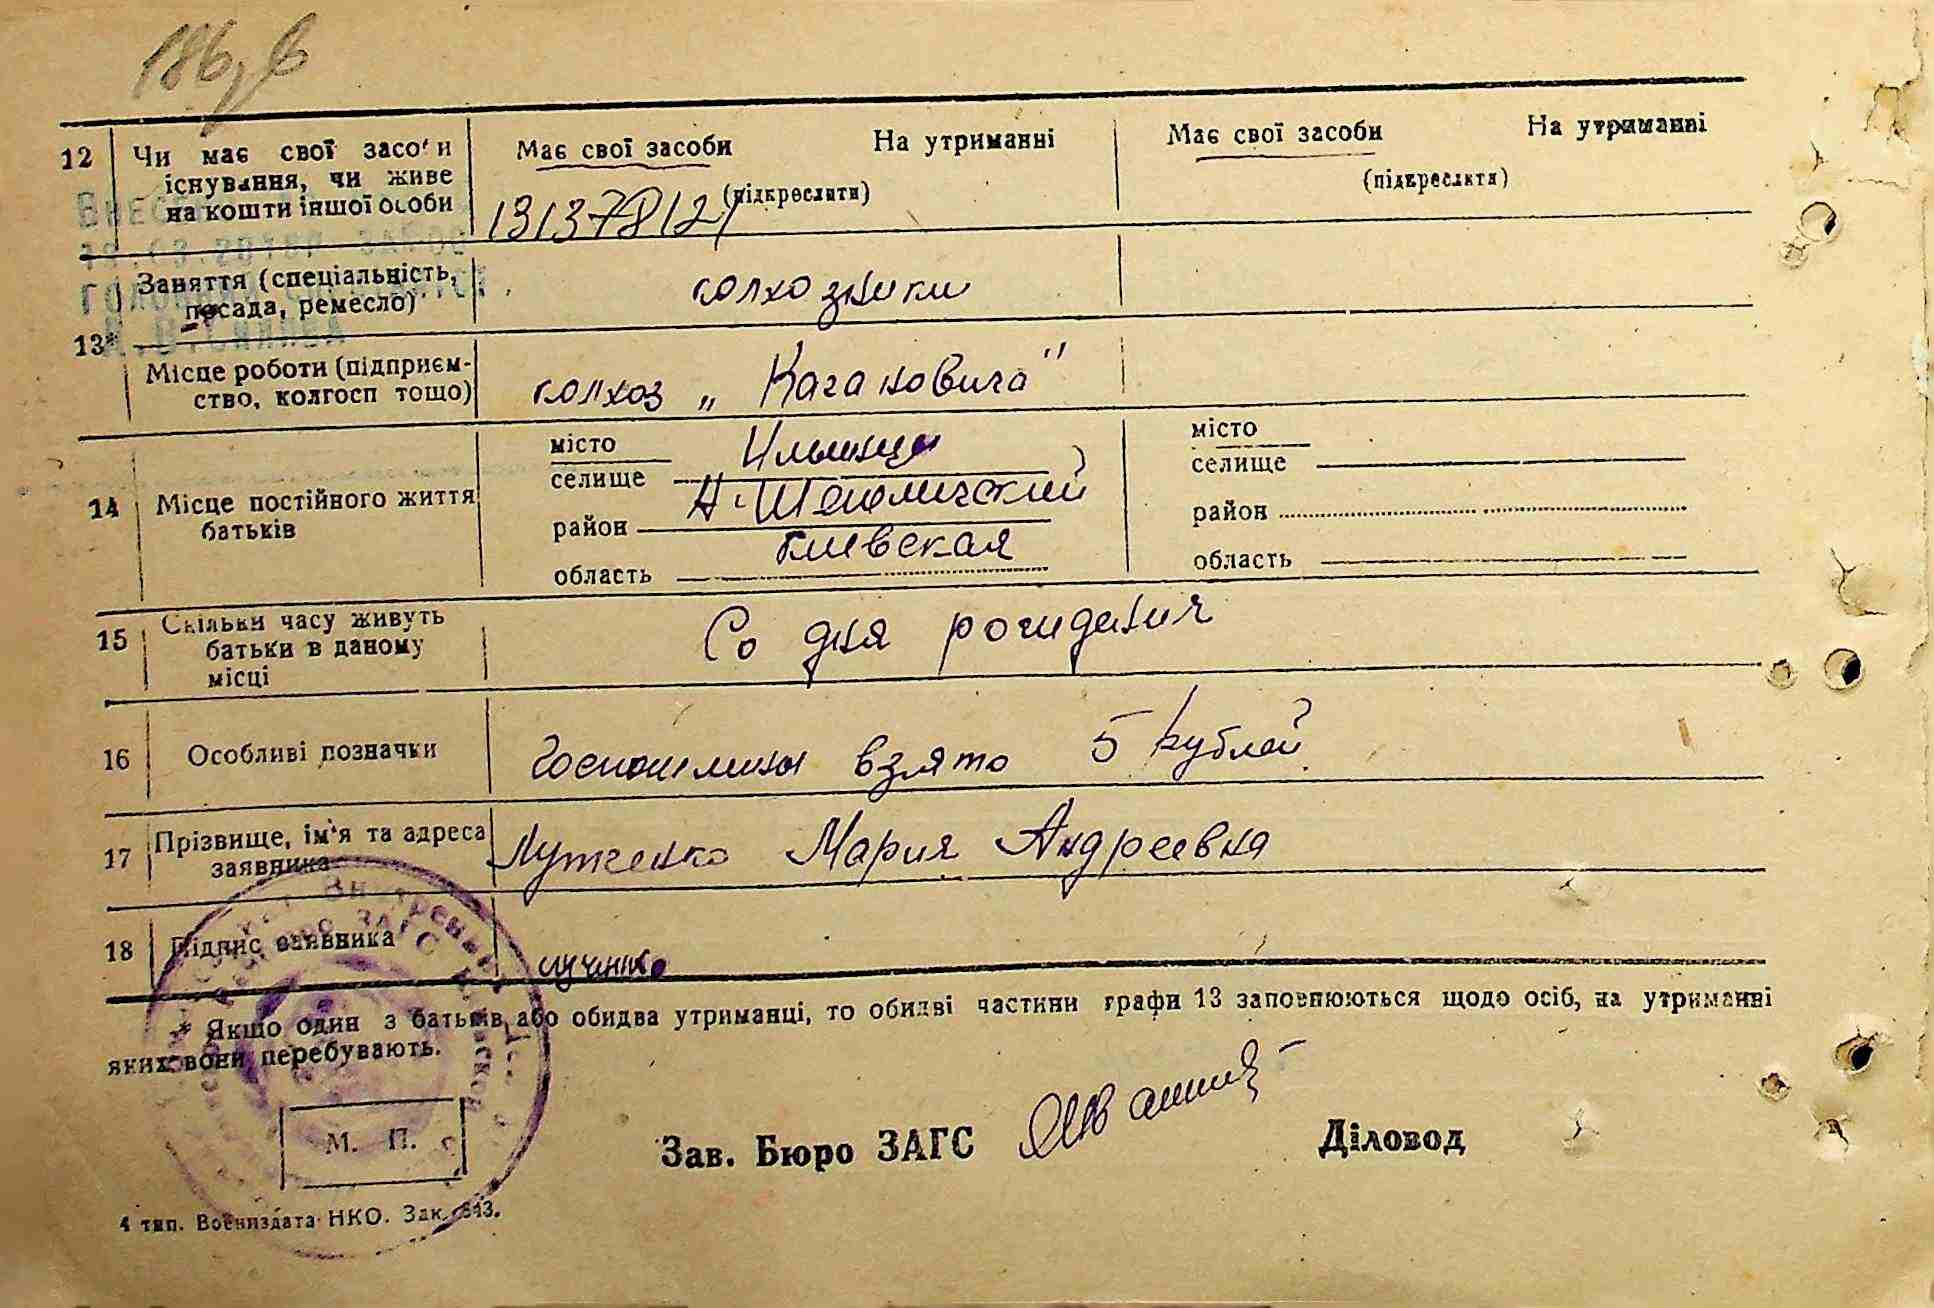 12
Чи має свої засоби
існування, чи живе
на кошти іншої особи
Має свої засоби На утриманні
(підкреслити)
131378121
Має свої засоби На утриманні
(підкреслити)
13*
Заняття (спеціальність,
посада, ремесло)
колхозники
Місце роботи (підприєм-
ство, колгосп тощо)
колхоз „Кагановича"
14
Місце постійного життя
батьків
місто
селище
Ильинцы
район
Н-Шепеличский
область
Киевская
місто
селище
район
область
15
Скільки часу живуть
батьки в даному
місці
Со дня рождения
16
Особливі позначки
Госпошлины взято 5 рублей
17
Прізвище, ім'я та адреса
заявника
Лутченко Мария Андреевна
18
Підпис заявника
* Якщо один з батьків або обидва утриманці, то обидві частини графи 13 заповнюються щодо осіб, на утриманні
яких вони перебувають.
М. П.
Зав. Бюро ЗАГС
Діловод
4 тип. Воениздата НКО. Зак. 813.